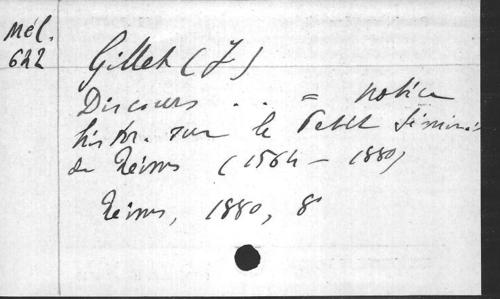 Mél.
622
Gillet (J)
Discours . . = notice
histor. sur le Petit Sémin.
de Reims (1564 – 1880)
Reims, 1880, 8°